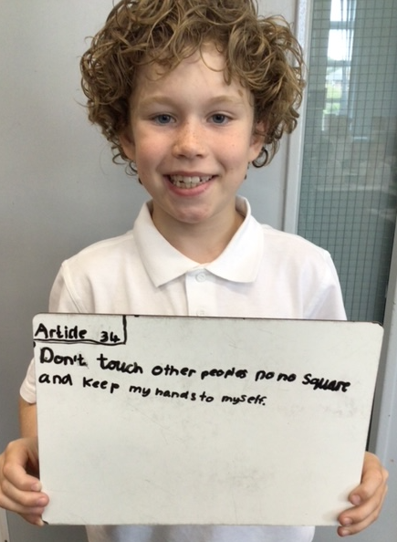 Article 34
Don't touch other peoples no no square
and keep my hands to myself.